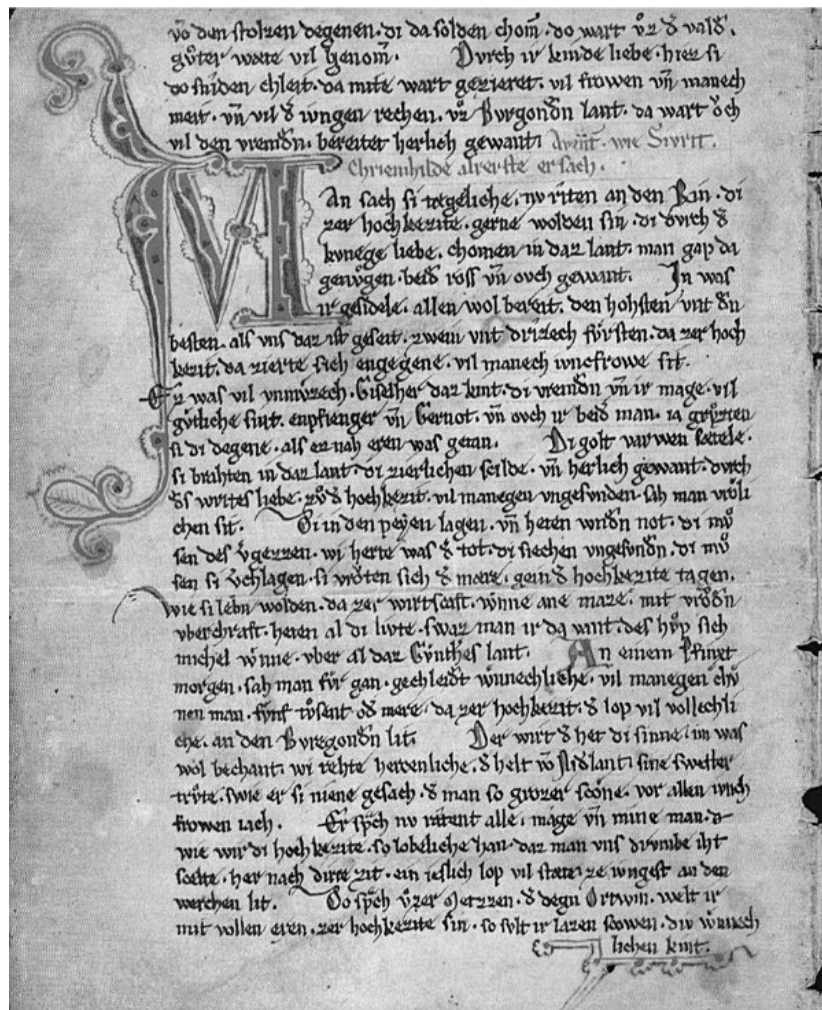 vō den stolzen degenen. di da solden chom̄. do wart vͦz d̾ vald̾.
gv̊ter wæte vil genom̄. Dvrch ir kinde liebe. hiez si
do sniden chleit. da mite wart gezieret. vil frowen vn̄ manech
meit. vn̄ vil d̾ iv̄ngen rechen. vͦz Bvrgond̾n lant. da wart ovch
vil den vremd̾n. bereitet herlich gewant. Avent̄. wie Sivrit.
Chriemhilde alrerste ersach.
MAn sach si tægeliche. nv riten an den Rin. di
zer hochkezite. gerne wolden sin. di dvrch d̾
kvnege liebe. chomen in daz lant. man gap da
genvͦgen. beid̾ ross vn̄ ovch gewant. In was
ir gesidele. allen wol bereit. den hohsten vnt d̾n
besten. als vns daz ist geseit. zwein vnt drizech fvrsten. da zer hoch
kezit. da zierte sich engegene. vil manech ivncfrowe sit.
Ez was vil vnmvͦzech. Giselher daz kint. di vremd̾n vn̄ ir mage. vil
gv̊tliche sint. enpfienger vn̄ Gernot. vn̄ ovch ir beid̾ man. ia grvͦzten
si di degene. als ez nah eren was getan. Di golt varwen sætele.
si brahten in daz lant. di zierlichen scilde. vn̄ herlich gewant. dvrch
d̾s wirtes liebe. zvͦ d̾ hochkezit. vil manegen vngesvnden. sah man vrͦoli
chen sit. Di in den petten lagen. vn̄ heten wnd̾n not. di mvͦ
sen des v̾gezzen. wi herte was d̾ tot. di siechen vngesvnd̾n. di mvͦ
sen si v̾chlagen. si vrͦoten sich d̾ mære. gein d̾ hochkezite tagen.
wie si leb̄n wolden. da zer wirtscaft. wͦnne ane maze. mit vrͦod̾n
vberchraft. heten al di livte. swaz man ir da vant. des hvͦp sich
michel wͦnne. vber al daz Gvnth̾es lant. An einem Pfinxt
morgen. sah man fv̊r gan. gechleid̾t wͦnnechliche. vil manegen chv̊
nen man. fv̊nf tͦvsent od̾ mere. da zer hochkezit. d̾ lop vil vollechli
che. an den Bvregond̾n lit. Der wirt d̾ het di sinne. im was
wol bechant. wi rehte herzenliche. d̾ helt vō Nid̾lant. sine swester
trvͦte. swie er si niene gesach. d̾ man so grozer scͦone. vor allen ivnch
frowen iach. Er sp̾ch nv ratent alle. mage vn̄ mine man.
wie wir di hochkezite. so lobeliche han. daz man vns drvmbe iht
scelte. her nach dirre zit. ein ieslich lop vil stæte. ze ivngest an den
werchen lit. Do sp̾ch vͦzer Metzzen. d̾ degn̄ Ortwin. welt ir
mit vollen eren. zer hochkezite sin. so svlt ir lazen scowen. div wͦnnech
lichen kint.